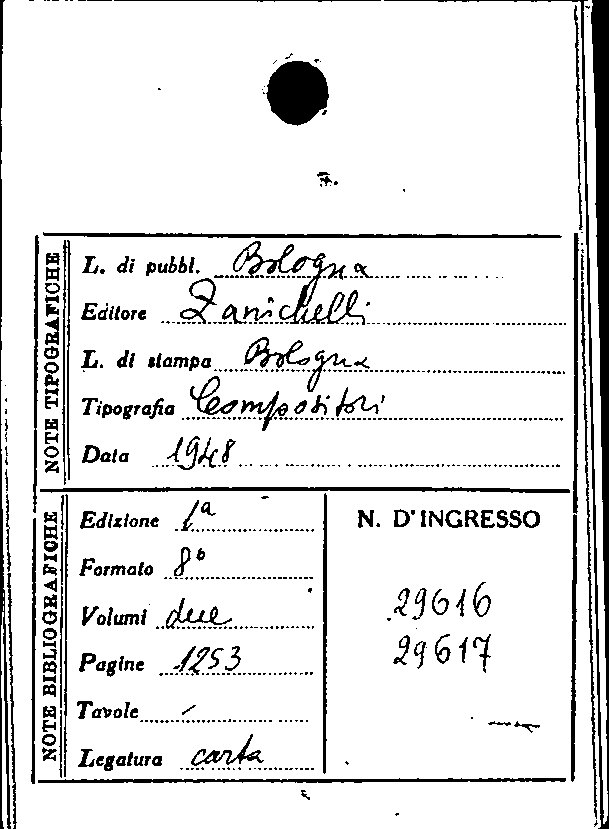 NOTE TIPOGRAFICHE
L. di pubbl. Bologna
Editore Zanichelli
L. di stampa Bologna
Tipografia Compositori
Data 1948
NOTE BIBLIOGRAFICHE
Edizione 1a
Formato 8°
Volumi due
Pagine 1253
Tavole /
Legatura carta
N. D'INGRESSO
29616
29617